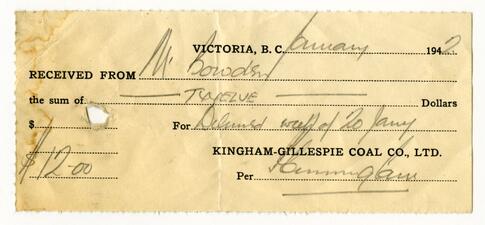 VICTORIA, B. C. January 1942
RECEIVED FROM Mr Bowden
the sum of TWELVE Dollars
$
For Delivered week of 20 Jany
$12.00
KINGHAM-GILLESPIE COAL CO., LTD.
Per